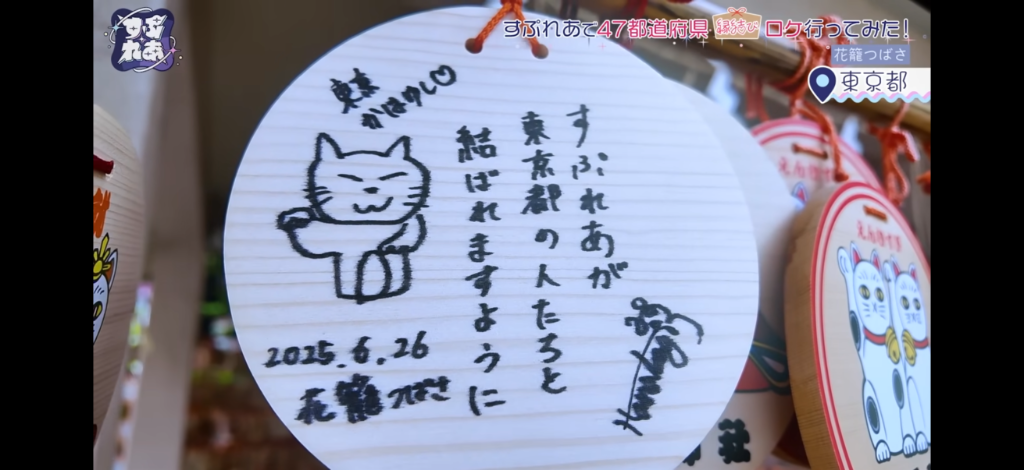 すぷれあ
すぷれあで47都道府県 縁結び ロケ行ってみた!
花籠つばさ
東京都
東京
かはゆし♡
すぷれあが
東京都の人たちと
結ばれますように
2025.6.26
花籠つばさ
えんむすび
社